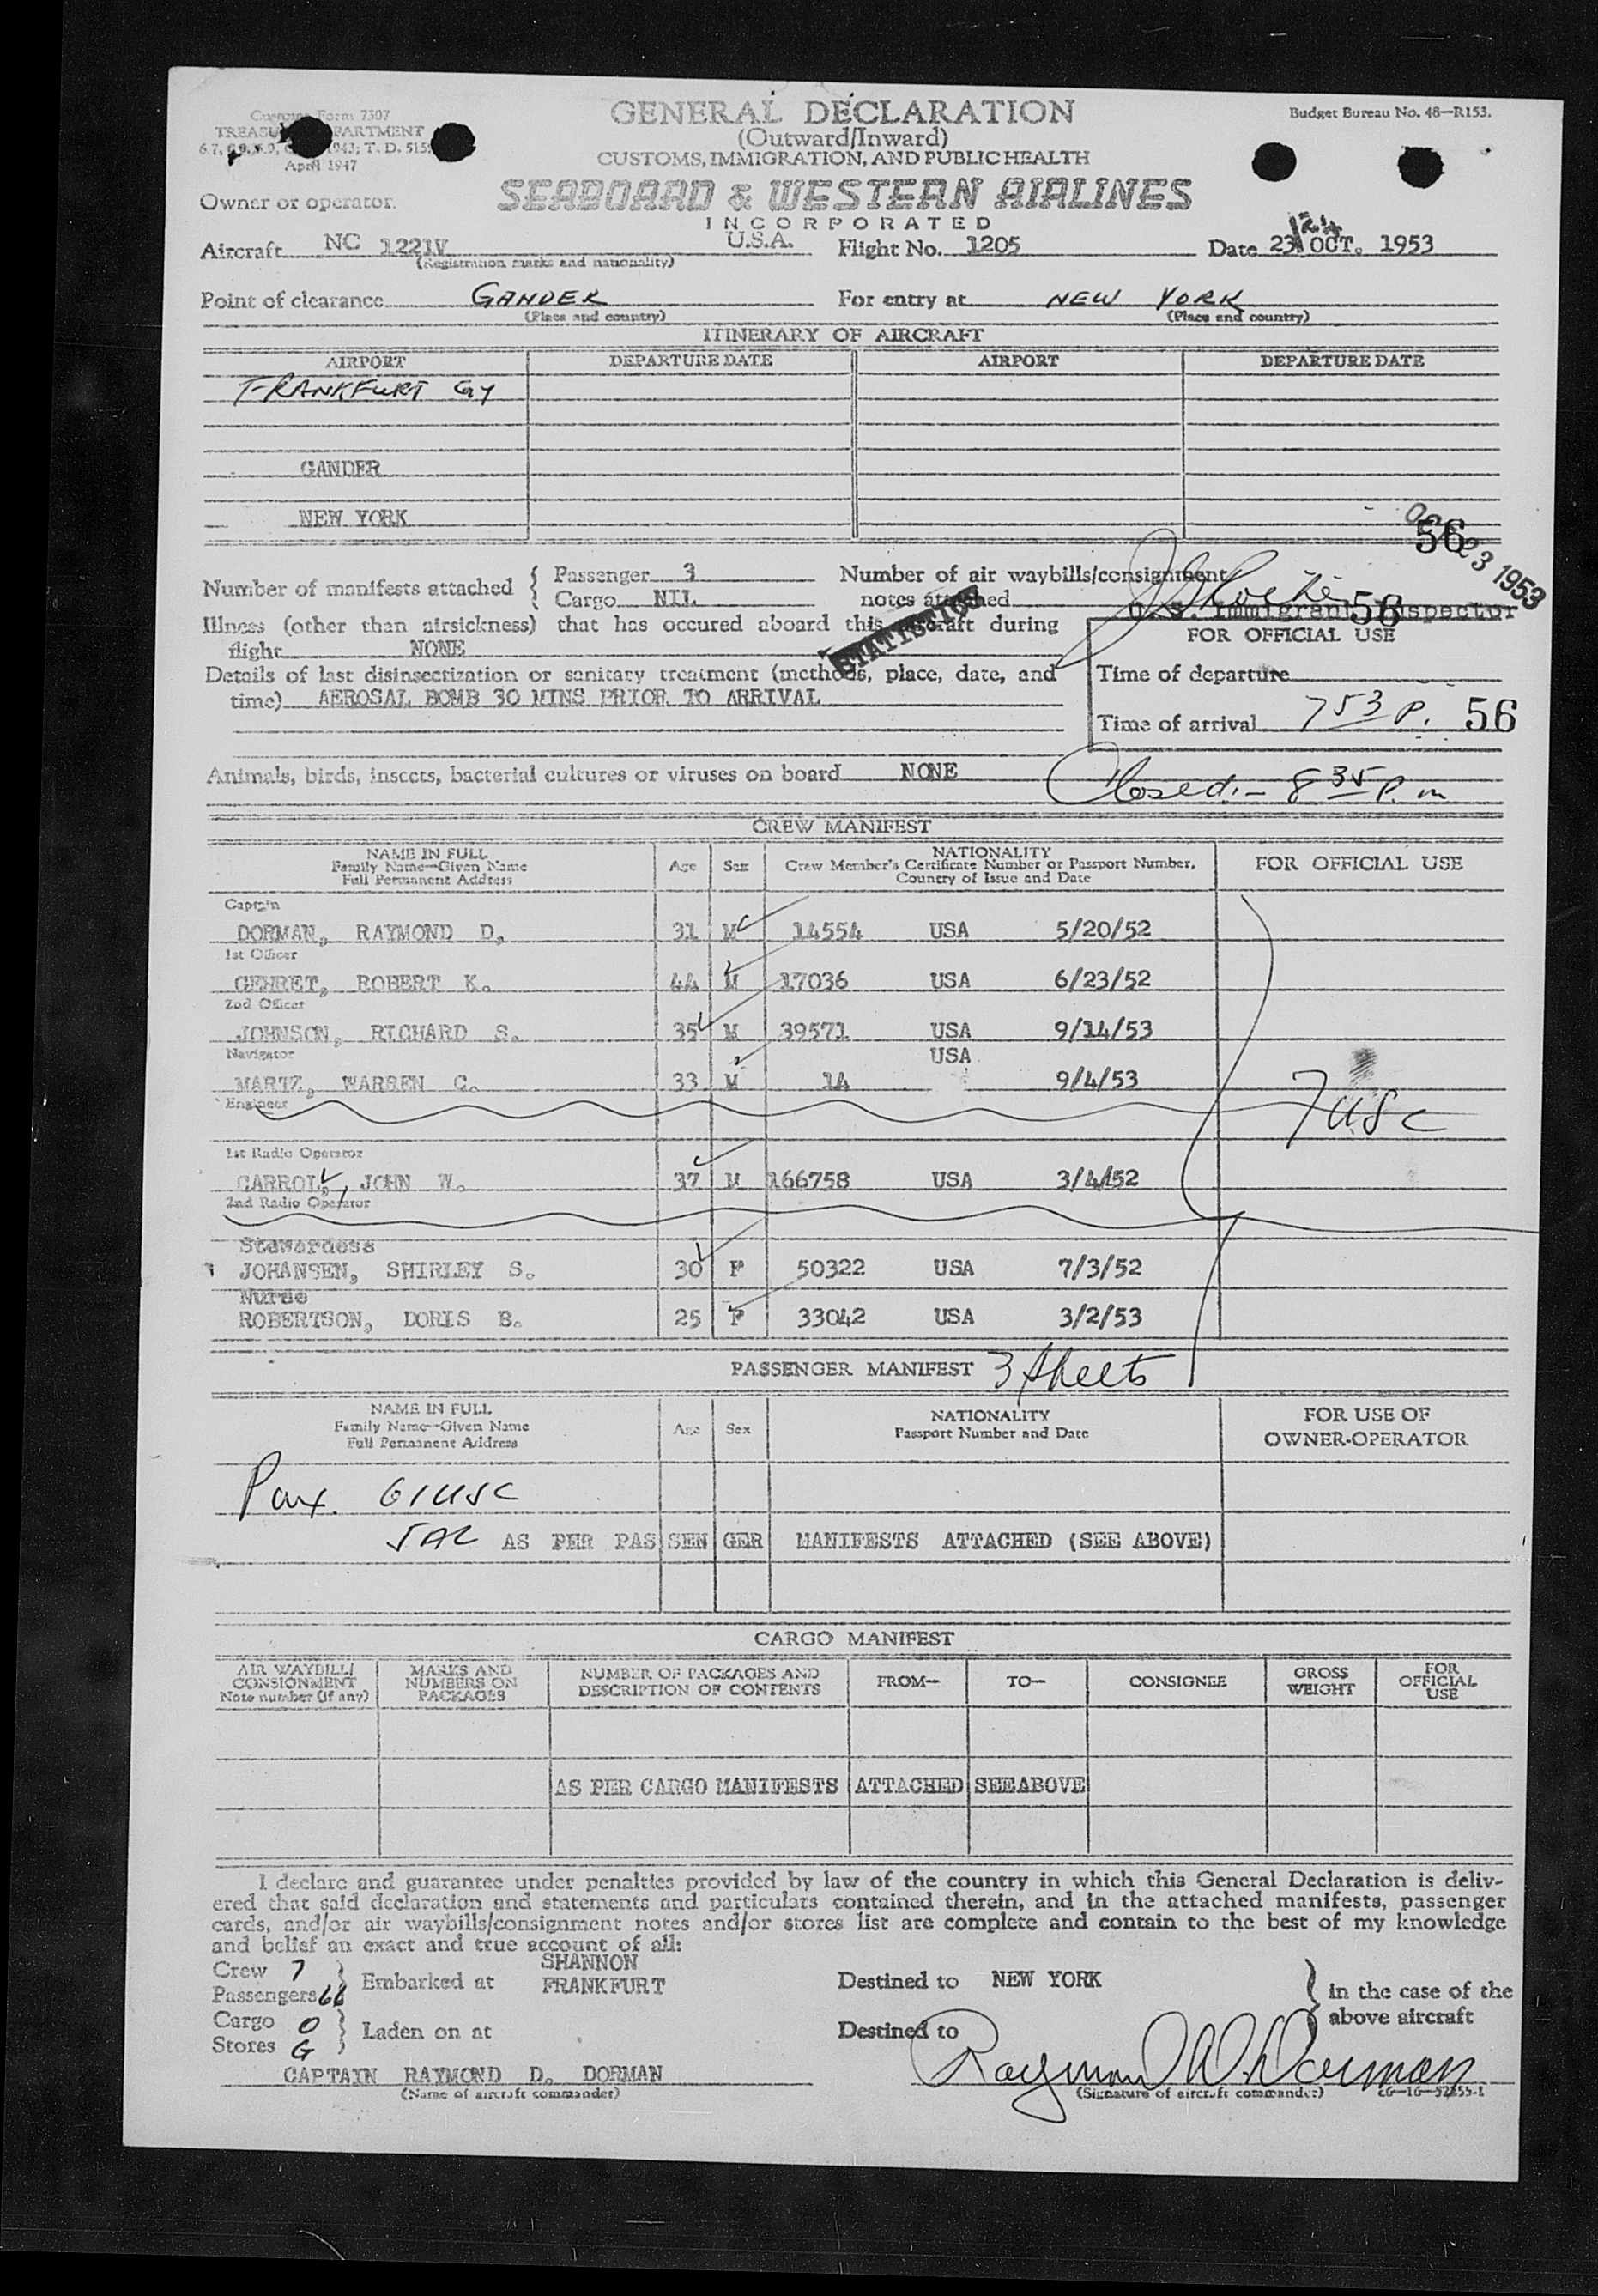 Customs Form 7507
GENERAL DECLARATION
Budget Bureau No. 48—R153.
(Outward/Inward)
CUSTOMS, IMMIGRATION, AND PUBLIC HEALTH
April 1947
SEABOARD & WESTERN AIRLINES
INCORPORATED
Owner or operator.
Aircraft NC 1221V U.S.A. Flight No. 1205 Date 23 OCT. 1953
(Registration marks and nationality)
Point of clearance GANDER For entry at NEW YORK
(Place and country) (Place and country)
ITINERARY OF AIRCRAFT
AIRPORT DEPARTURE DATE AIRPORT DEPARTURE DATE
FRANKFURT GY
GANDER
NEW YORK
56
OCT 23 1953
Number of manifests attached { Passenger 3 Number of air waybills/consignment
Cargo NIL notes attached
U. S. Immigrant Inspector
56
STATISTICS
Illness (other than airsickness) that has occured aboard this aircraft during
flight NONE
FOR OFFICIAL USE
Details of last disinsectization or sanitary treatment (methods, place, date, and
time) AEROSAL BOMB 30 MINS PRIOR TO ARRIVAL
Time of departure
Time of arrival 753 P. 56
Animals, birds, insects, bacterial cultures or viruses on board NONE
Closed:- 8 35 P. m
CREW MANIFEST
NAME IN FULL Age Sex NATIONALITY FOR OFFICIAL USE
Family Name—Given Name Crew Member's Certificate Number or Passport Number,
Full Permanent Address Country of Issue and Date
Captain
DORMAN, RAYMOND D, 31 M 14554 USA 5/20/52
1st Officer
GEHRET, ROBERT K. 44 M 17036 USA 6/23/52
2nd Officer
JOHNSON, RICHARD S. 35 M 39571 USA 9/14/53
Navigator USA
MARTZ, WARREN C. 33 M 14 9/4/53
Engineer
7 USC
1st Radio Operator
CARROL, JOHN W. 37 M 166758 USA 3/4/52
2nd Radio Operator
Stewardess
JOHANSEN, SHIRLEY S. 30 F 50322 USA 7/3/52
Nurse
ROBERTSON, DORIS B. 25 F 33042 USA 3/2/53
PASSENGER MANIFEST 3 sheets
NAME IN FULL Age Sex NATIONALITY FOR USE OF
Family Name—Given Name Passport Number and Date OWNER-OPERATOR
Full Permanent Address
Pax. 61 USC
5 AL AS PER PASSENGER MANIFESTS ATTACHED (SEE ABOVE)
CARGO MANIFEST
AIR WAYBILL/ MARKS AND NUMBER OF PACKAGES AND FROM— TO— CONSIGNEE GROSS FOR
CONSIGNMENT NUMBERS ON DESCRIPTION OF CONTENTS WEIGHT OFFICIAL
Note number (if any) PACKAGES USE
AS PER CARGO MANIFESTS ATTACHED SEE ABOVE
I declare and guarantee under penalties provided by law of the country in which this General Declaration is deliv-
ered that said declaration and statements and particulars contained therein, and in the attached manifests, passenger
cards, and/or air waybills/consignment notes and/or stores list are complete and contain to the best of my knowledge
and belief an exact and true account of all:
Crew 7 SHANNON
Passengers 66 } Embarked at FRANKFURT Destined to NEW YORK } in the case of the
Cargo 0 above aircraft
Stores G } Laden on at Destined to
CAPTAIN RAYMOND D. DORMAN
(Name of aircraft commander) (Signature of aircraft commander)